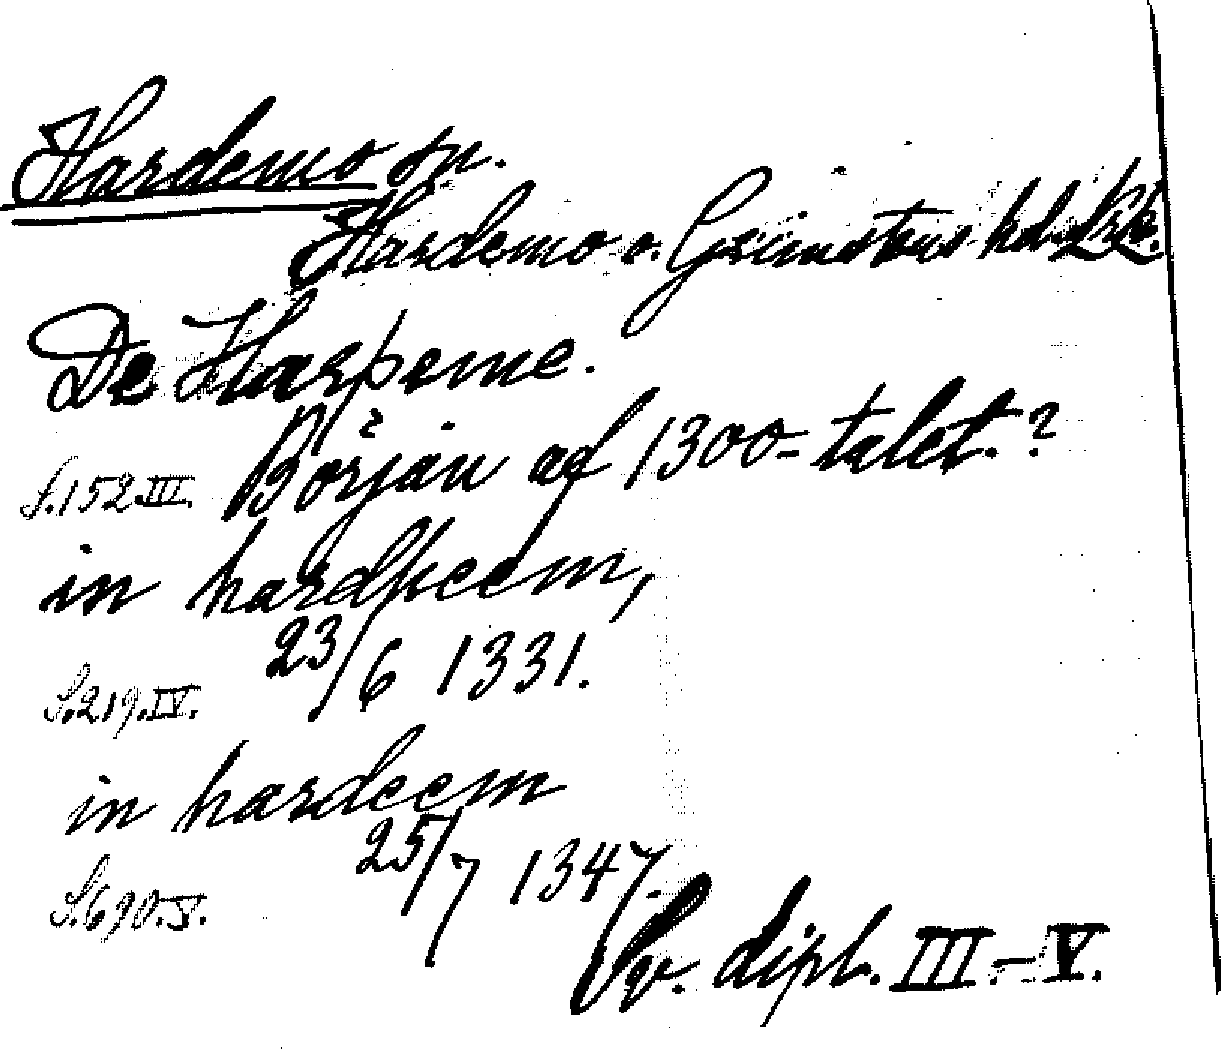 Hardemo sn.
Hardemo o. Grimstens hd. Närke.
De Harþeme.
S.152.III. Början af 1300-talet.?
in hardheem,
23/6 1331.
S.219.IV.
in hardeem
25/7 1347.
S.690.V.
Sv. dipl. III.-V.